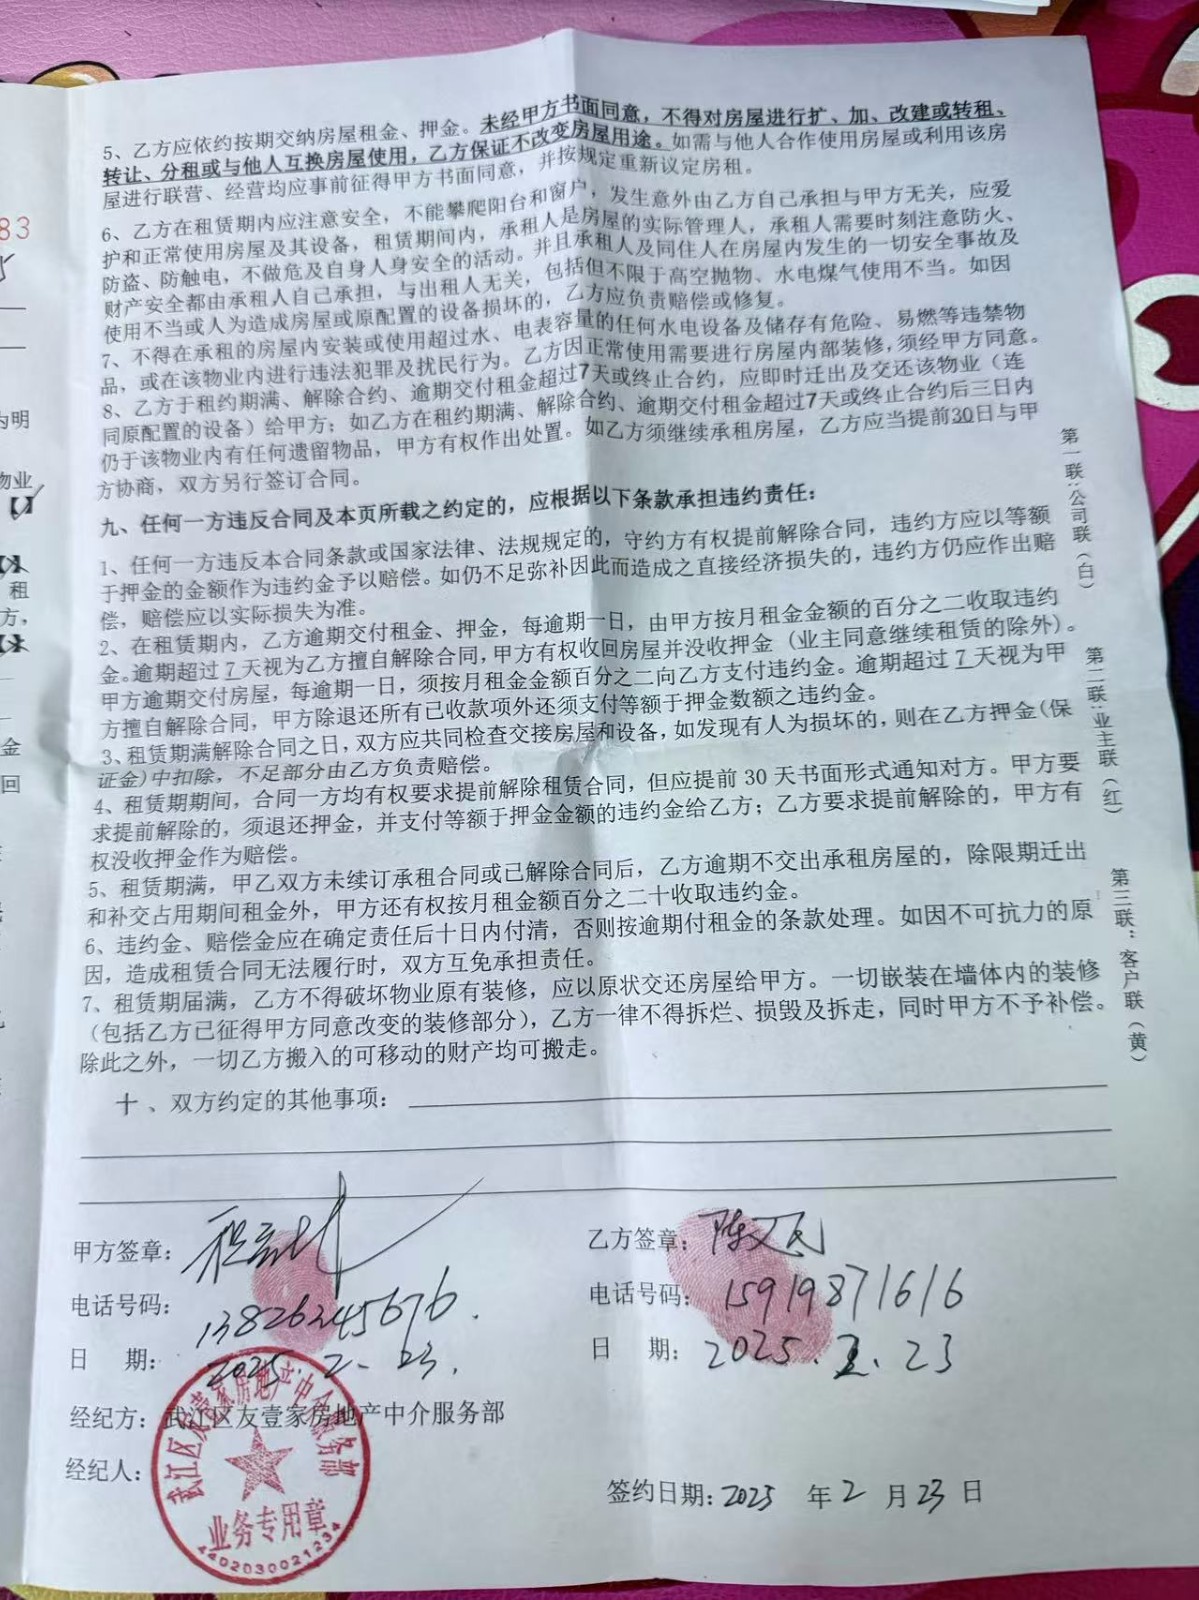 5、乙方应依约按期交纳房屋租金、押金。未经甲方书面同意，不得对房屋进行扩、加、改建或转租、
转让、分租或与他人互换房屋使用，乙方保证不改变房屋用途。如需与他人合作使用房屋或利用该房
屋进行联营、经营均应事前征得甲方书面同意，并按规定重新议定房租。
6、乙方在租赁期内应注意安全，不能攀爬阳台和窗户，发生意外由乙方自己承担与甲方无关，应爱
护和正常使用房屋及其设备，租赁期间内，承租人是房屋的实际管理人，承租人需要时刻注意防火、
防盗、防触电，不做危及自身人身安全的活动。并且承租人及同住人在房屋内发生的一切安全事故及
财产安全都由承租人自己承担，与出租人无关，包括但不限于高空抛物、水电煤气使用不当。如因
使用不当或人为造成房屋或原配置的设备损坏的，乙方应负责赔偿或修复。
7、不得在承租的房屋内安装或使用超过水、电表容量的任何水电设备及储存有危险、易燃等违禁物
品，或在该物业内进行违法犯罪及扰民行为。乙方因正常使用需要进行房屋内部装修,须经甲方同意。
8、乙方于租约期满、解除合约、逾期交付租金超过7天或终止合约，应即时迁出及交还该物业（连
同原配置的设备）给甲方；如乙方在租约期满、解除合约、逾期交付租金超过7天或终止合约后三日内
仍于该物业内有任何遗留物品，甲方有权作出处置。如乙方须继续承租房屋，乙方应当提前30日与甲
方协商，双方另行签订合同。
九、任何一方违反合同及本页所载之约定的，应根据以下条款承担违约责任：
1、任何一方违反本合同条款或国家法律、法规规定的，守约方有权提前解除合同，违约方应以等额
于押金的金额作为违约金予以赔偿。如仍不足弥补因此而造成之直接经济损失的，违约方仍应作出赔
偿，赔偿应以实际损失为准。
2、在租赁期内，乙方逾期交付租金、押金，每逾期一日，由甲方按月租金金额的百分之二收取违约
金。逾期超过7天视为乙方擅自解除合同,甲方有权收回房屋并没收押金（业主同意继续租赁的除外）。
甲方逾期交付房屋，每逾期一日，须按月租金金额百分之二向乙方支付违约金。逾期超过7天视为甲
方擅自解除合同，甲方除退还所有已收款项外还须支付等额于押金数额之违约金。
3、租赁期满解除合同之日，双方应共同检查交接房屋和设备，如发现有人为损坏的，则在乙方押金(保
证金)中扣除，不足部分由乙方负责赔偿。
4、租赁期期间，合同一方均有权要求提前解除租赁合同，但应提前30天书面形式通知对方。甲方要
求提前解除的，须退还押金，并支付等额于押金金额的违约金给乙方；乙方要求提前解除的，甲方有
权没收押金作为赔偿。
5、租赁期满，甲乙双方未续订承租合同或已解除合同后，乙方逾期不交出承租房屋的，除限期迁出
和补交占用期间租金外，甲方还有权按月租金额百分之二十收取违约金。
6、违约金、赔偿金应在确定责任后十日内付清，否则按逾期付租金的条款处理。如因不可抗力的原
因，造成租赁合同无法履行时，双方互免承担责任。
7、租赁期届满，乙方不得破坏物业原有装修，应以原状交还房屋给甲方。一切嵌装在墙体内的装修
（包括乙方已征得甲方同意改变的装修部分），乙方一律不得拆烂、损毁及拆走，同时甲方不予补偿。
除此之外，一切乙方搬入的可移动的财产均可搬走。
十、双方约定的其他事项：
甲方签章：
电话号码：13826245676.
日 期：2025.2.23.
乙方签章：陈
电话号码：15919871616
日 期：2025.2.23
经纪方：武江区友壹家房地产中介服务部
经纪人：
签约日期：2025 年 2 月 23 日
武江区友壹家房地产中介服务部
业务专用章
4402030021234
第一联：公司联（白）
第二联：业主联（红）
第三联：客户联（黄）
83
为明
物业
租
方，
金
回